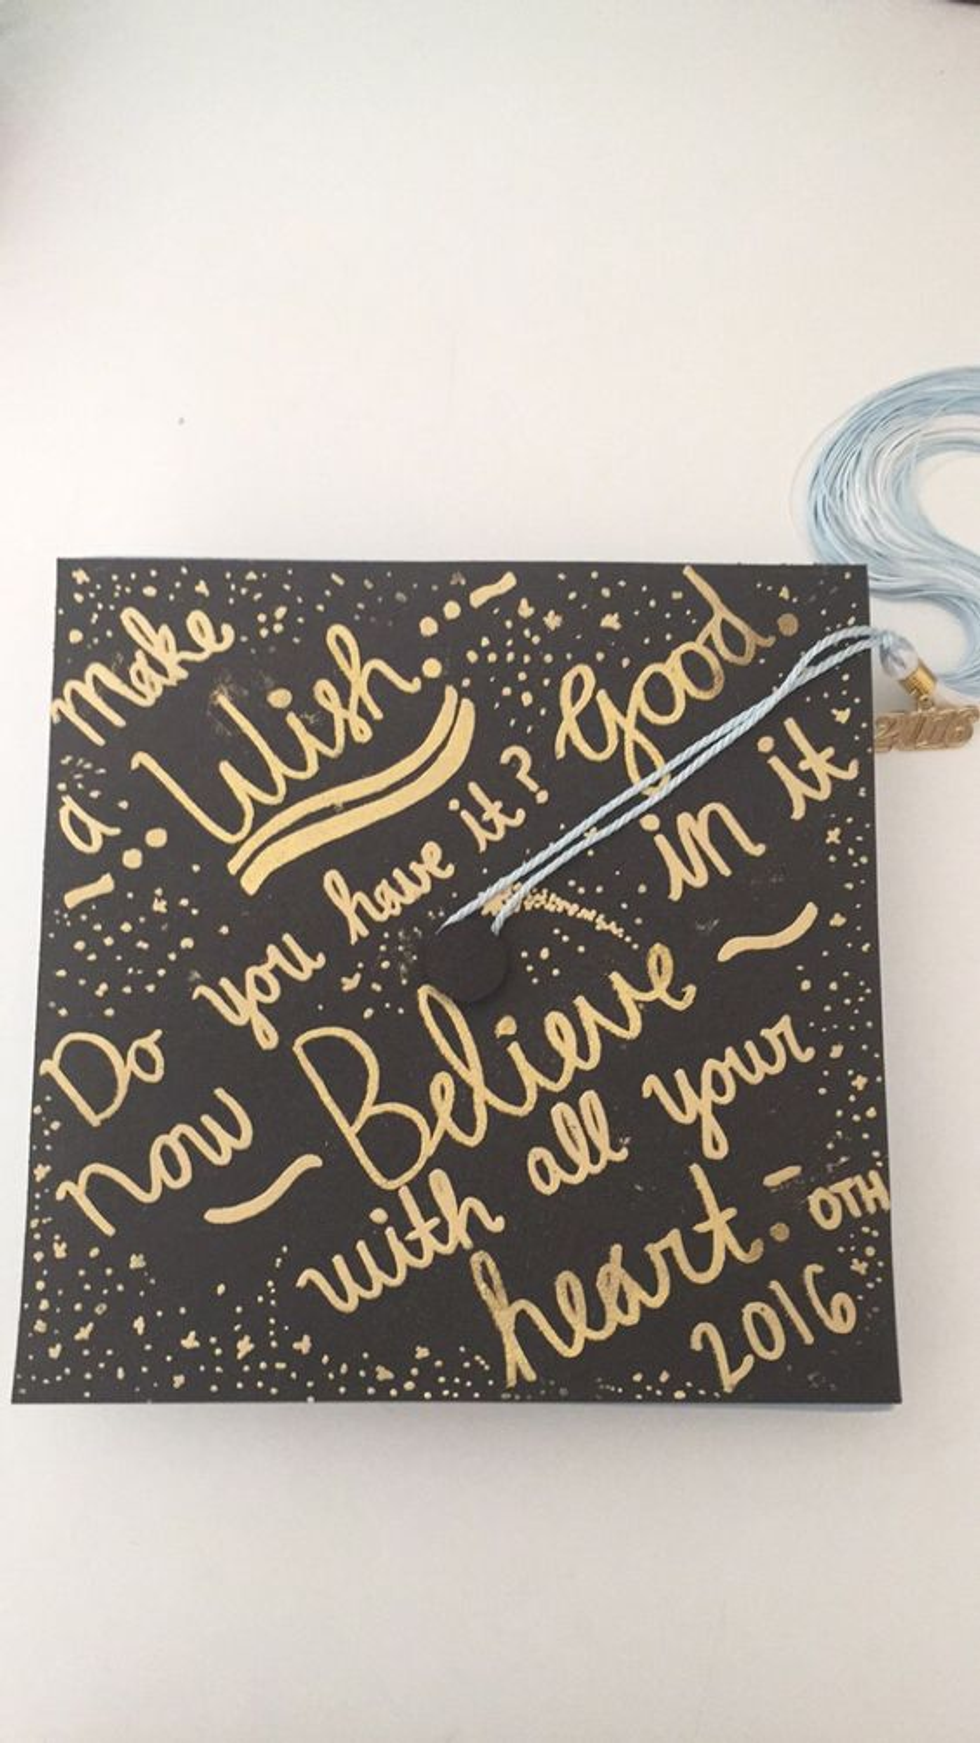 make
a Wish.
Do you have it? Good.
now Believe in it
with all your
heart. - OTH
2016
2016